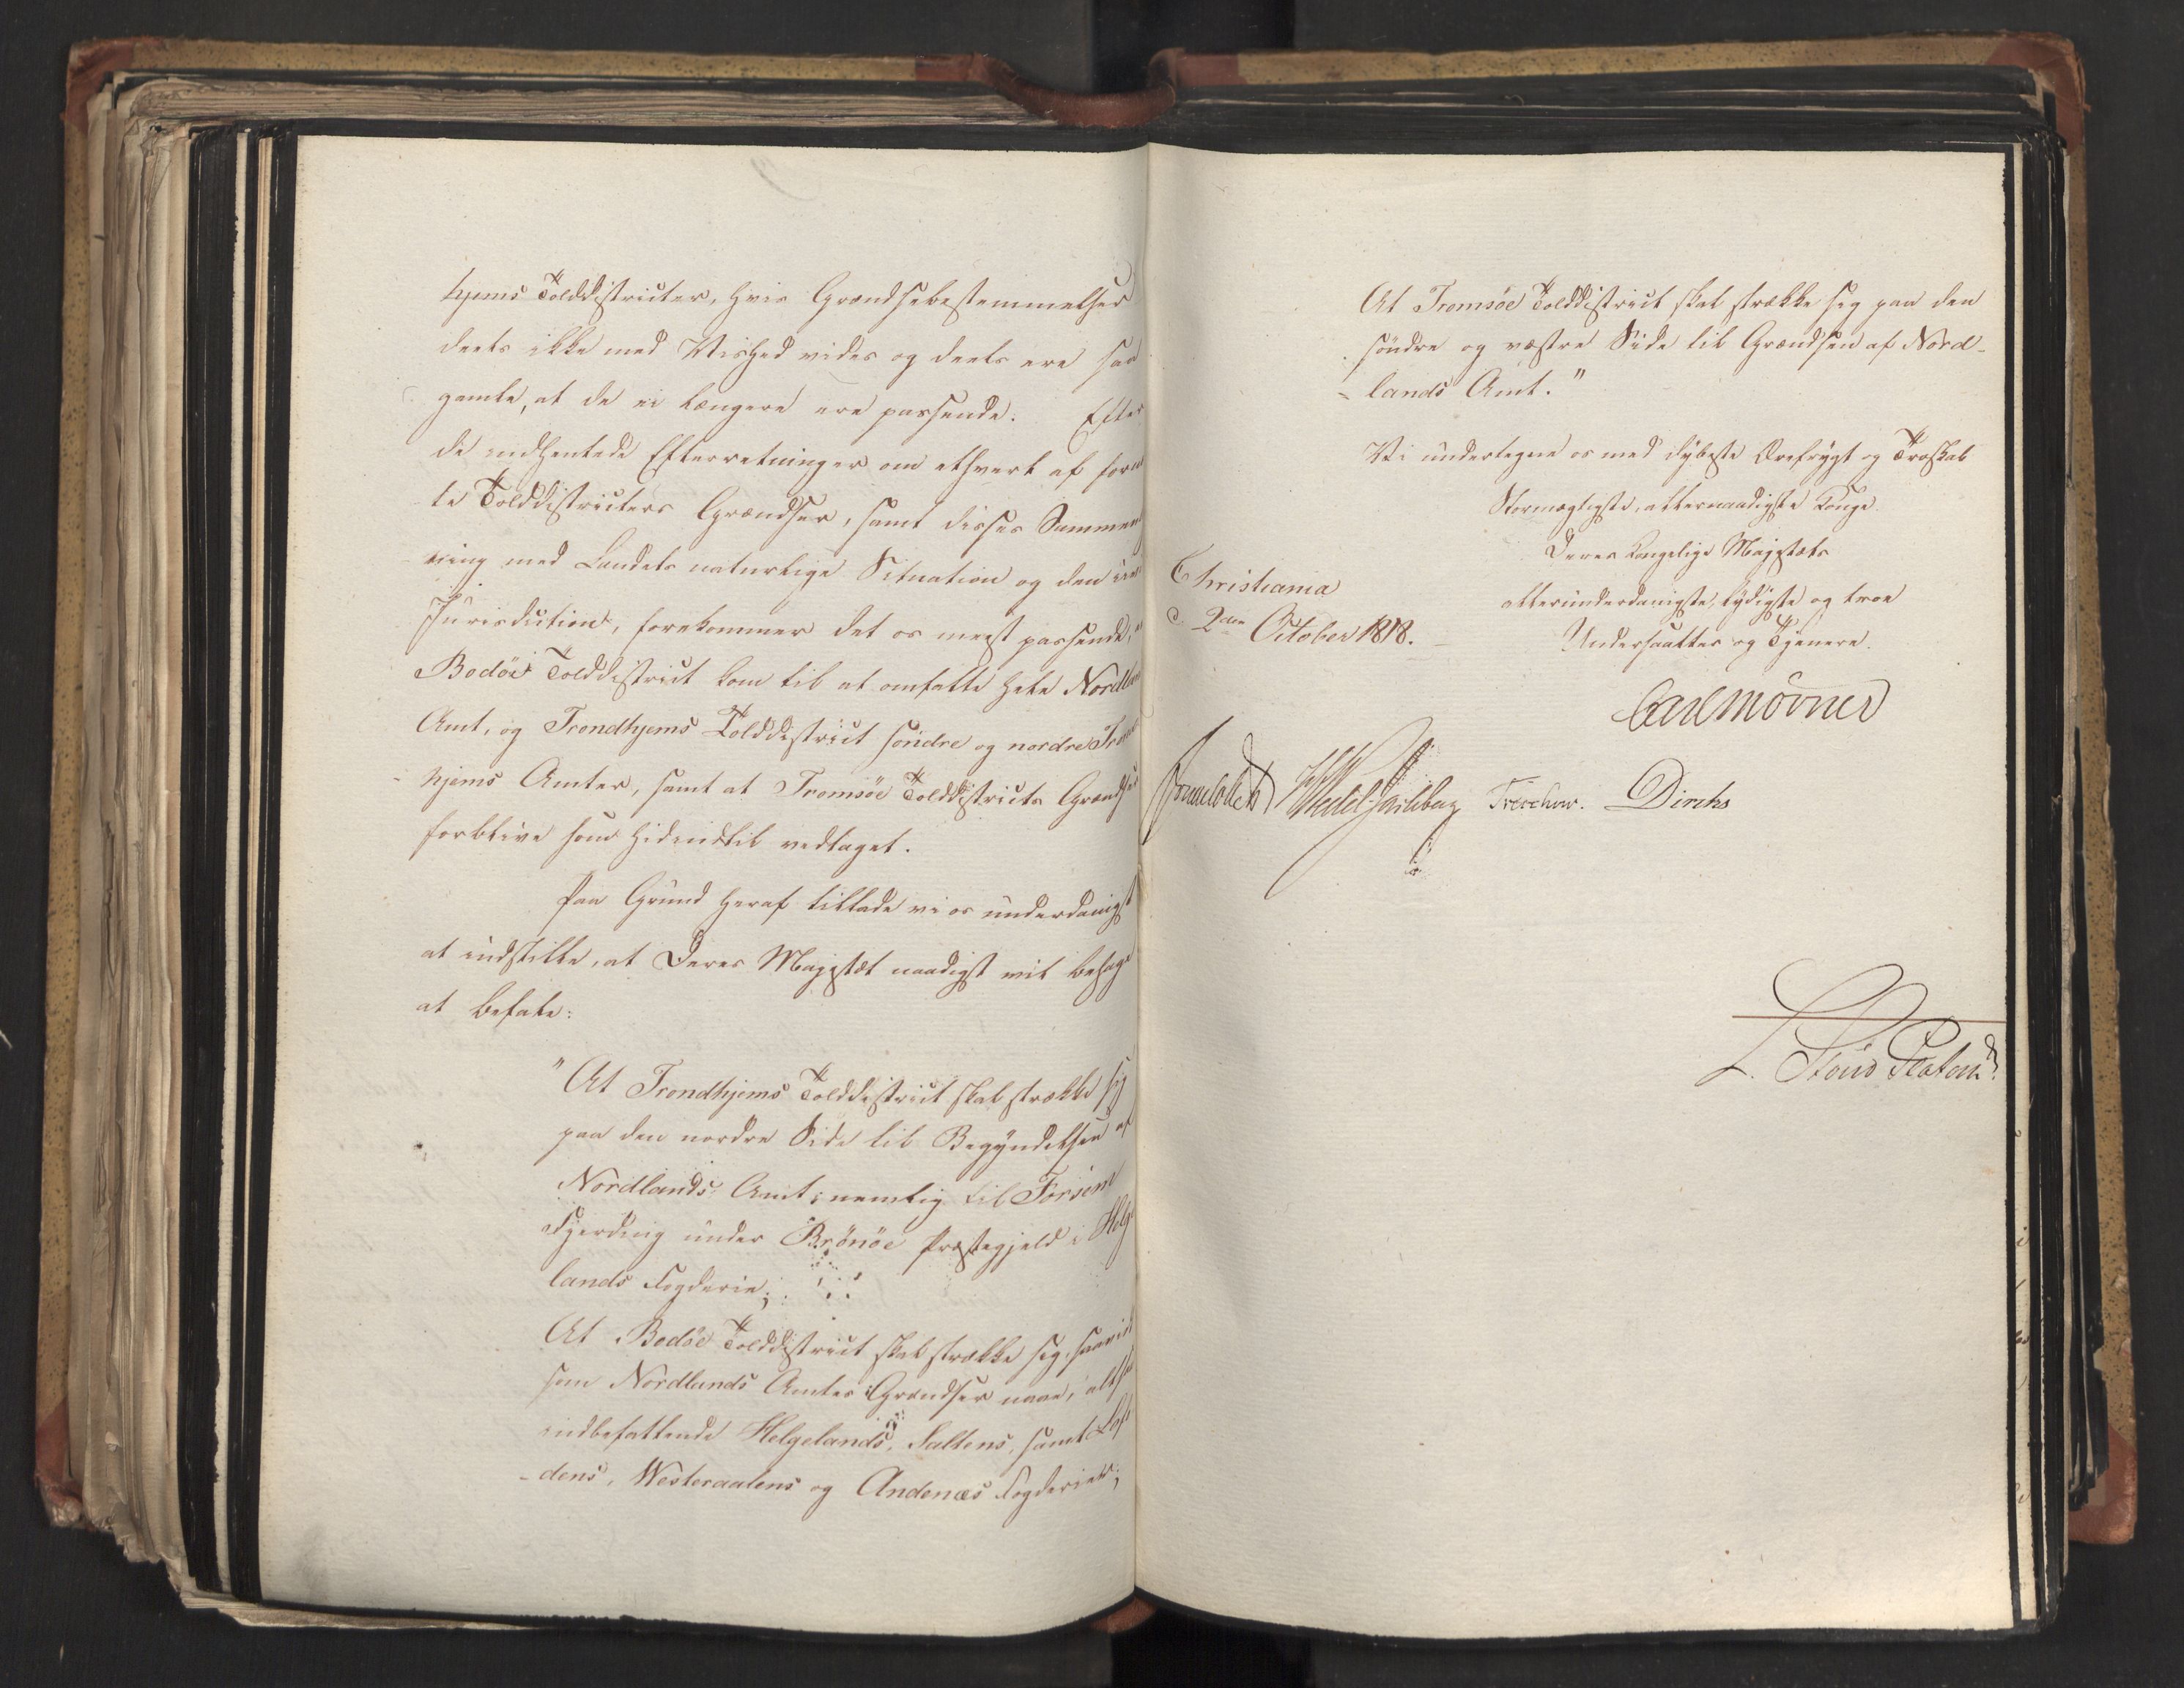 hjems Tolddistricter, hvis Grændsebestemmelser
deels ikke med Vished vides og deels ere saa
gamle, at de ei længere ere passende. Efter
de indhentede Efterretninger om ethvert af forn
te Tolddistricters Grændser, samt disses Sammen
ning med Landets naturlige Situation og den
Jurisdiction, forekommer det os meest passende,
Bodöe Tolddistrict kom til at omfatte hele Nordlan
Amt, og Trondhjems Tolddistrict söndre og nordre Trond
hjems Amter, samt at Tromsöe Tolddistricts Grændser
forblive som hidindtil vedtaget.
Paa Grund heraf tillade vi os underdanigst
at indstille, at Deres Majestæt naadigst vil behage
at befale:
"At Trondhjems Tolddistrict skal strække sig
paa den nordre Side til Begyndelsen af
Nordlands Amt; nemlig til Forsem
Fjerding under Brönöe Præstegjeld i Helge
lands Fogderie;
At Bodöe Tolddistrict skal strække sig, saavidt
som Nordlands Amtes Grændser naae, altsaa
indbefattende Helgelands, Saltens, samt Lofo
-dens, Westeraalens og Andenæs Fogderier;
At Tromsöe Tolddistrict skal strække sig paa den
söndre og vestre Side til Grændsen af Nord-
lands Amt."
Vi undertegne os med dybeste Ærefrygt og Troskab
Stormægtigste, allernaadigste Konge
Deres Kongelige Majestæts
allerunderdanigste, lydigste og troe
Undersaatter og Tjenere.
Christiania
d. 2den October 1818.
Carl Mörner
Jonas Collett Wedel Jarlsberg Treschow. Diriks
L. Stoud Platou